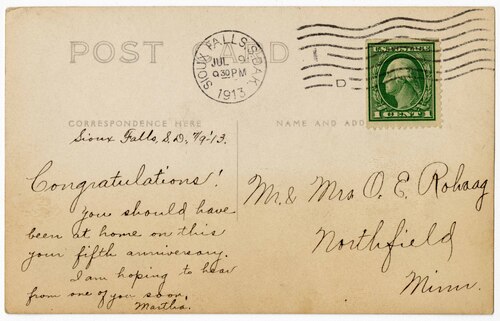 POST CARD
SIOUX FALLS, S.DAK.
JUL 9
9 30 PM
1913
D
U.S. POSTAGE
1 CENT 1
CORRESPONDENCE HERE
NAME AND ADD
Sioux Falls, S.D., 7/9-'13.
Congratulations!
You should have
been at home on this
your fifth anniversary.
I am hoping to hear
from one of you soon.
Martha.
Mr. & Mrs O. E. Rolvaag
Northfield
Minn.